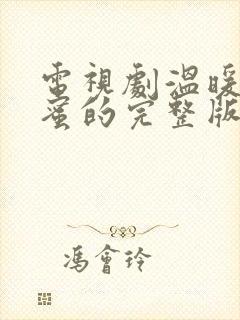 電視劇溫暖
蜜的完整版
馮會玲